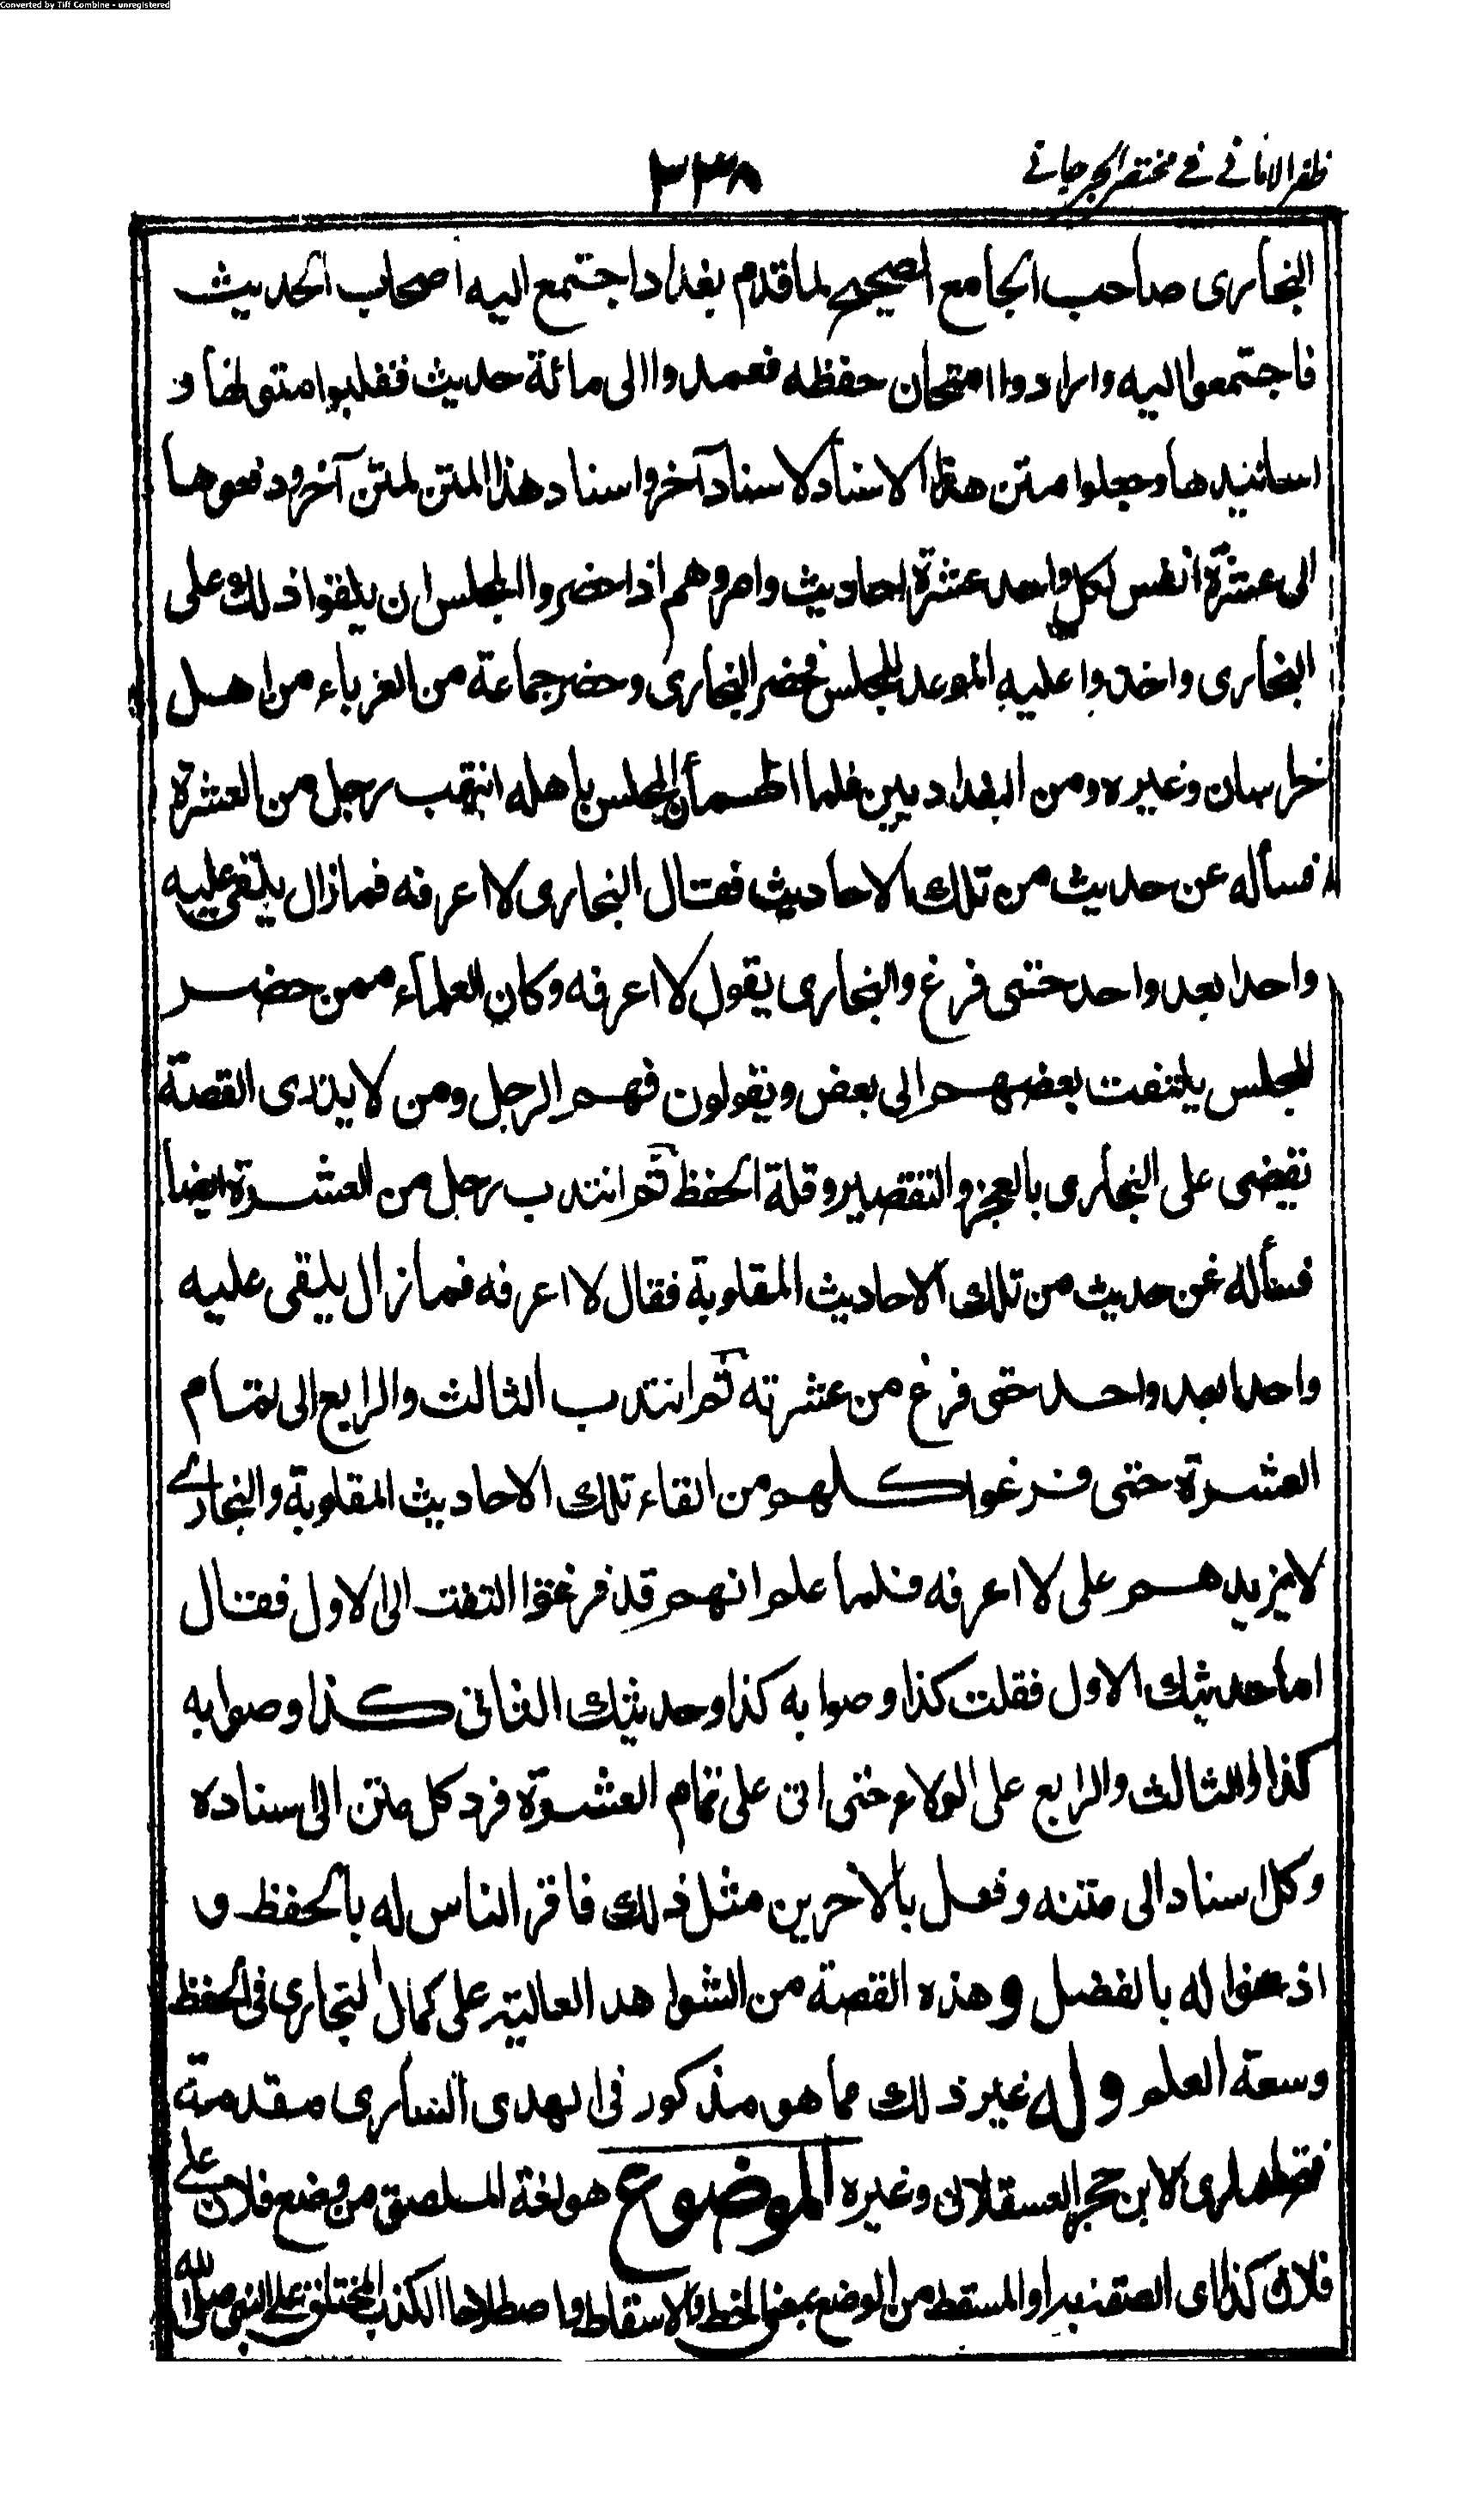 Converted by Tiff Combine - unregistered
ظفر الامانے فے مختصر الجرجانے
٢٣٨
البخاری صاحب الجامع الصحیح لما قدم بغداد اجتمع الیه اصحاب الحدیث
فاجتمعوا الیه وارادوا امتحان حفظه فعمدوا الی مائة حدیث فقلبوا متونها و
اسانیدها وجعلوا متن هذا الاسناد لاسناد آخر واسناد هذا المتن لمتن آخر ودفعوها
الی عشرة انفس لکل واحد عشرة احادیث وامروهم اذا حضروا المجلس ان یلقوا ذلك علی
البخاری واخذوا علیه الموعد للمجلس فحضر البخاری وحضر جماعة من الغرباء من اهل
خراسان وغیره ومن البغدادیین فلما اطمأن المجلس باهله انتدب رجل من العشرة
فسأله عن حدیث من تلك الاحادیث فقال البخاری لا اعرفه فمازال یلقی علیه
واحدا بعد واحد حتی فرغ والبخاری یقول لا اعرفه وکان العلماء ممن حضر
المجلس یلتفت بعضهم الی بعض ویقولون فهم الرجل ومن لا یدری القصة
تقضی علی البخاری بالعجز والتقصیر وقلة الحفظ ثم انتدب رجل من العشرة ایضا
فسأله عن حدیث من تلك الاحادیث المقلوبة فقال لا اعرفه فمازال یلقی علیه
واحدا بعد واحد حتی فرغ من عشرته ثم انتدب الثالث والرابع الی تمام
العشرة حتی فرغوا کلهم من القاء تلك الاحادیث المقلوبة والبخارے
لا یزیدهم علی لا اعرفه فلما علم انهم قد فرغوا التفت الی الاول فقال
اما حدیثك الاول فقلت کذا وصوابه کذا وحدیثك الثانی کذا وصوابه
کذا والثالث والرابع علی الولاء حتی اتی علی تمام العشرة فرد کل متن الی اسناده
وکل اسناد الی متنه وفعل بالآخرین مثل ذلك فاقر الناس له بالحفظ و
اذعنوا له بالفضل وهذه القصة من الشواهد العالیة علی کمال البخاری فی الحفظ
وسعة العلم وله غیر ذلك مما هو مذکور فی الهدی الساری مقدمة
لابن حجر العسقلانی وغیره الموضوع هو لغة الملصق من وضع فلان علے
فلان کذا ای الصقه به او المسقط من الوضع بمعنی الحط والاسقاط واصطلاحا الکذب المختلق علی النبی صلی الله